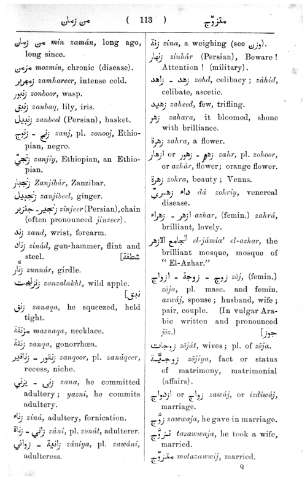 من زمان ( 113 ) متزوّج
من زمان min zamān, long ago,
long since.
مزمن mozmin, chronic (disease).
زمهرير zamhareer, intense cold.
زنبور zonboor, wasp.
زنبق zanbaq, lily, iris.
زنبيل zanbeel (Persian), basket.
زنج - زنوج zanj, pl. zonooj, Ethio-
pian, negro.
زنجي zanjiy, Ethiopian, an Ethio-
pian.
زنجبار Zanjibār, Zanzibar.
زنجبيل zanjibeel, ginger.
زنجير - جنزير zinjeer (Persian), chain
(often pronounced jinzeer).
زند zand, wrist, forearm.
زناد zinād, gun-hammer, flint and
steel.
زنار zunnār, girdle.
زنزلخت zanzalakht, wild apple.
زنق zanaqa, he squeezed, held
tight.
مزنقة maznaqa, necklace.
زنقة zanqa, gonorrhœa.
زنقور - زناقير zanqoor, pl. zanāqeer,
recess, niche.
زنى - يزني zana, he committed
adultery; yazni, he commits
adultery.
زناء zinā, adultery, fornication.
زاني - زناة zāni, pl. zonāt, adulterer.
زانية - زواني zāniya, pl. zawāni,
adulteress.
زنة zina, a weighing (see وزن).
زنهار zinhār (Persian), Beware!
Attention! (military).
زهد - زاهد zohd, celibacy; zāhid,
celibate, ascetic.
زهيد zaheed, few, trifling.
زهر zahara, it bloomed, shone
with brilliance.
زهرة zahra, a flower.
زهر - زهور or ازهار zahr, pl. zohoor,
or azhār, flower; orange flower.
زهرة zohra, beauty; Venus.
داء زهري dā zohriy, venereal
disease.
ازهر - زهراء azhar, (femin.) zahrā,
brilliant, lovely.
الجامع الازهر el-jāmia' el-azhar, the
brilliant mosque, mosque of
"El-Azhar."
زوج - زوجة - ازواج zōj, (femin.)
zōja, pl. masc. and femin.
azwāj, spouse; husband, wife;
pair, couple. (In vulgar Ara-
bic written and pronounced
جوز jōz.)
زوجات zōjāt, wives; pl. of zōja.
زوجية zōjiya, fact or status
of matrimony, matrimonial
(affairs).
زواج or ازدواج zawāj, or izdiwāj,
marriage.
زوّج zawwaja, he gave in marriage.
تزوّج tazawwaja, he took a wife,
married.
متزوّج motazawwij, married.
Q